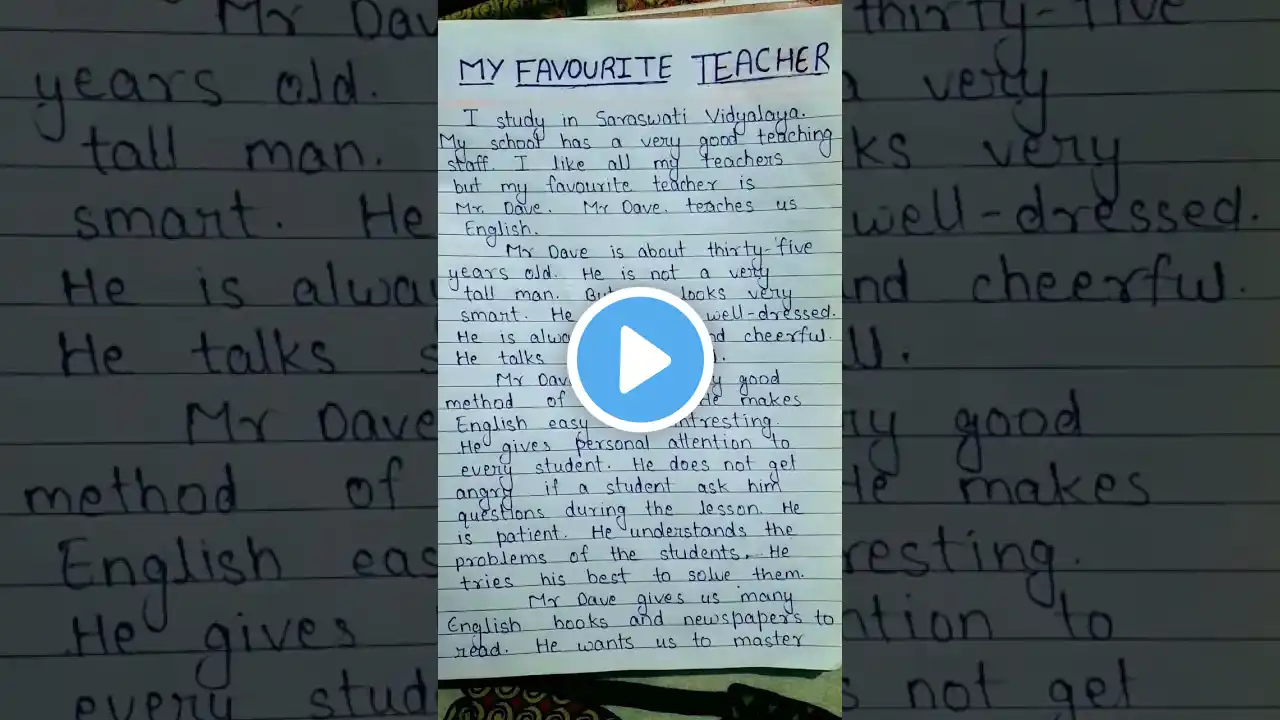 MY FAVOURITE TEACHER
I study in Saraswati Vidyalaya.
My school has a very good teaching
staff. I like all my teachers
but my favourite teacher is
Mr. Dave. Mr Dave. teaches us
English.
Mr Dave is about thirty-five
years old. He is not a very
tall man. But looks very
smart. He well-dressed.
He is alway and cheerful.
He talks s ll.
Mr Dave ry good
method of He makes
English easy intresting.
He gives personal attention to
every student. He does not get
angry if a student ask him
questions during the lesson. He
is patient. He understands the
problems of the students. He
tries his best to solve them.
Mr Dave gives us many
English books and newspapers to
read. He wants us to master